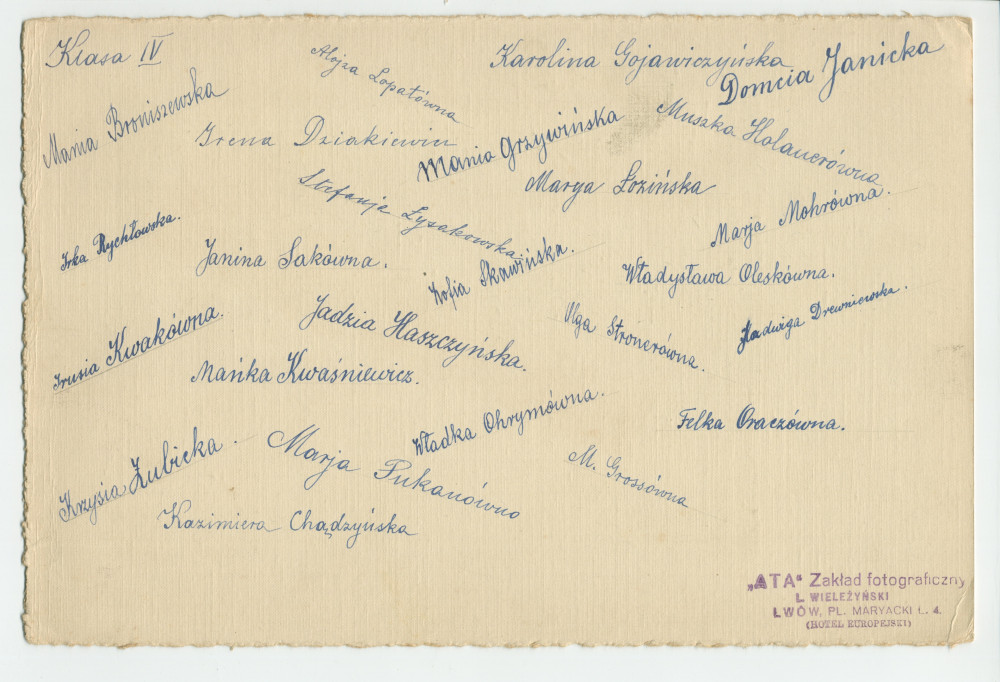 Klasa IV
Alojza Łopatówna
Karolina Gojawiczyńska
Domcia Janicka
Mania Broniszewska
Irena Dziakiewicz
Mania Grzywińska
Muszka Holauerówna
Stefanja Łysakowska
Marya Łozińska
Irka Rychłowska.
Janina Sakówna.
Zofia Skawińska.
Marja Mohrówna.
Władysława Oleskówna.
Irusia Kwakówna.
Jadzia Haszczyńska.
Olga Stronerówna.
Jadwiga Drewniewska.
Mańka Kwaśniewicz.
Władka Ohrymówna.
Felka Oraczówna.
Krzysia Zubicka
Marja Pukanówno
M. Grossówna
Kazimiera Chądzyńska
„ATA" Zakład fotograficzny
L WIELEŻYŃSKI
LWÓW, PL. MARYACKI L. 4.
(HOTEL EUROPEJSKI)